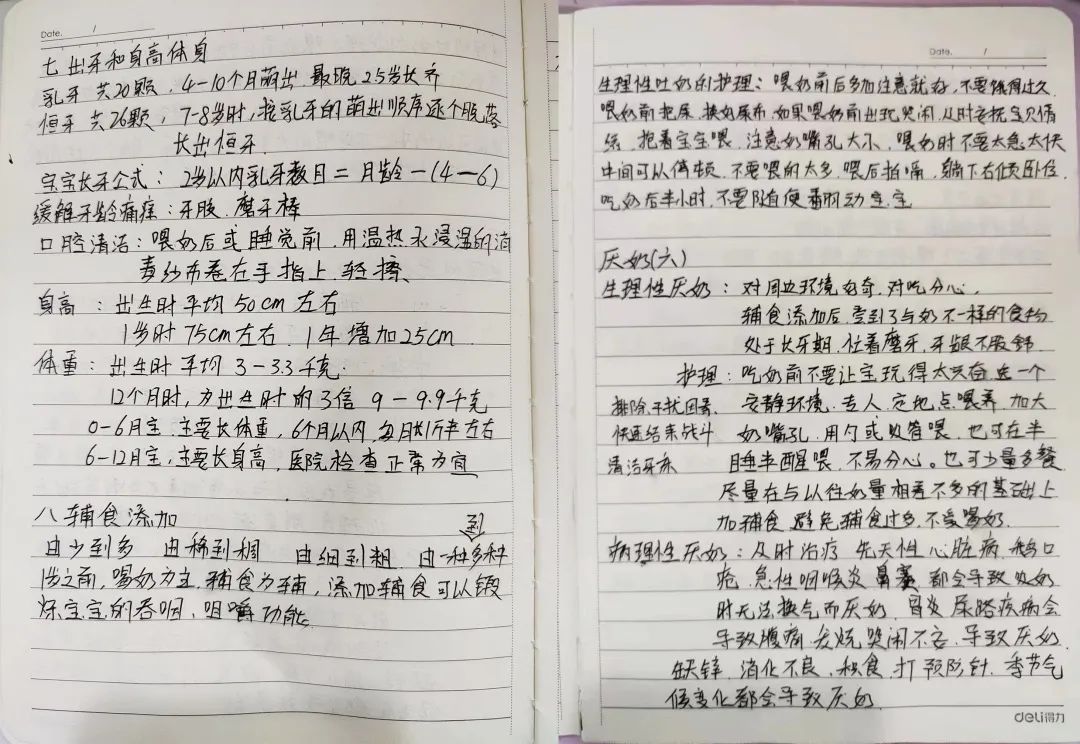 Date. /
七 出牙和身高体身
乳牙 共20颗，4-10个月萌出 最晚 2.5岁长齐
恒牙 共26颗，7-8岁时，按乳牙的萌出顺序逐个脱落
长出恒牙
宝宝长牙公式：2岁以内乳牙数目=月龄-(4-6)
缓解牙龄痛痒：牙胶、磨牙棒
口腔清洁：喂奶后或睡觉前.用温热水浸湿的消
毒纱布卷在手指上.轻擦、
身高：出生时平均50cm左右
1岁时75cm左右.1年增加25cm
体重：出生时平均3-3.3千克.
12个月时,为出生时的3倍 9-9.9千克
0-6月宝.主要长体重,6个月以内,每月长1斤半左右
6-12月宝,主要长身高,医院检查正常为宜
八 辅食添加
由少到多 由稀到稠 由细到粗 由一种到多种
1岁之前,喝奶为主,辅食为辅,添加辅食可以锻
炼宝宝的吞咽、咀嚼功能.
Date. /
生理性吐奶的护理：喂奶前后多加注意就好,不要饿得过久
喂奶前把尿.换好尿布.如果喂奶前出现哭闹.及时安抚宝贝情
绪.抱着宝宝喂.注意奶嘴孔大小.喂奶时不要太急太快
中间可以停顿.不要喂的太多.喂后拍嗝,躺下右侧卧位
吃奶后半小时.不要随便翻动宝宝
厌奶(六)
生理性厌奶：对周边环境好奇.对吃分心.
辅食添加后.尝到了与奶不一样的食物
处于长牙期.忙着磨牙.牙龈不服舒
护理：吃奶前不要让宝玩得太兴奋 选一个
排除干扰因素、安静环境.专人.定地点喂养.加大
快速结束战斗 奶嘴孔.用勺或吸管喂.也可在半
清洁牙床 睡半醒喂.不易分心。也可少量多餐
尽量在与以往奶量相差不多的基础上
加辅食.避免辅食过多.不爱喝奶.
病理性厌奶：及时治疗 先天性心脏病 鹅口
疮.急性咽喉炎 鼻塞 都会导致吸奶
时无法换气而厌奶.胃炎 尿路疾病会
导致腹痛.发烧.哭闹不安.导致厌奶.
缺锌.消化不良.积食.打预防针.季节气
候变化都会导致厌奶.
deli得力